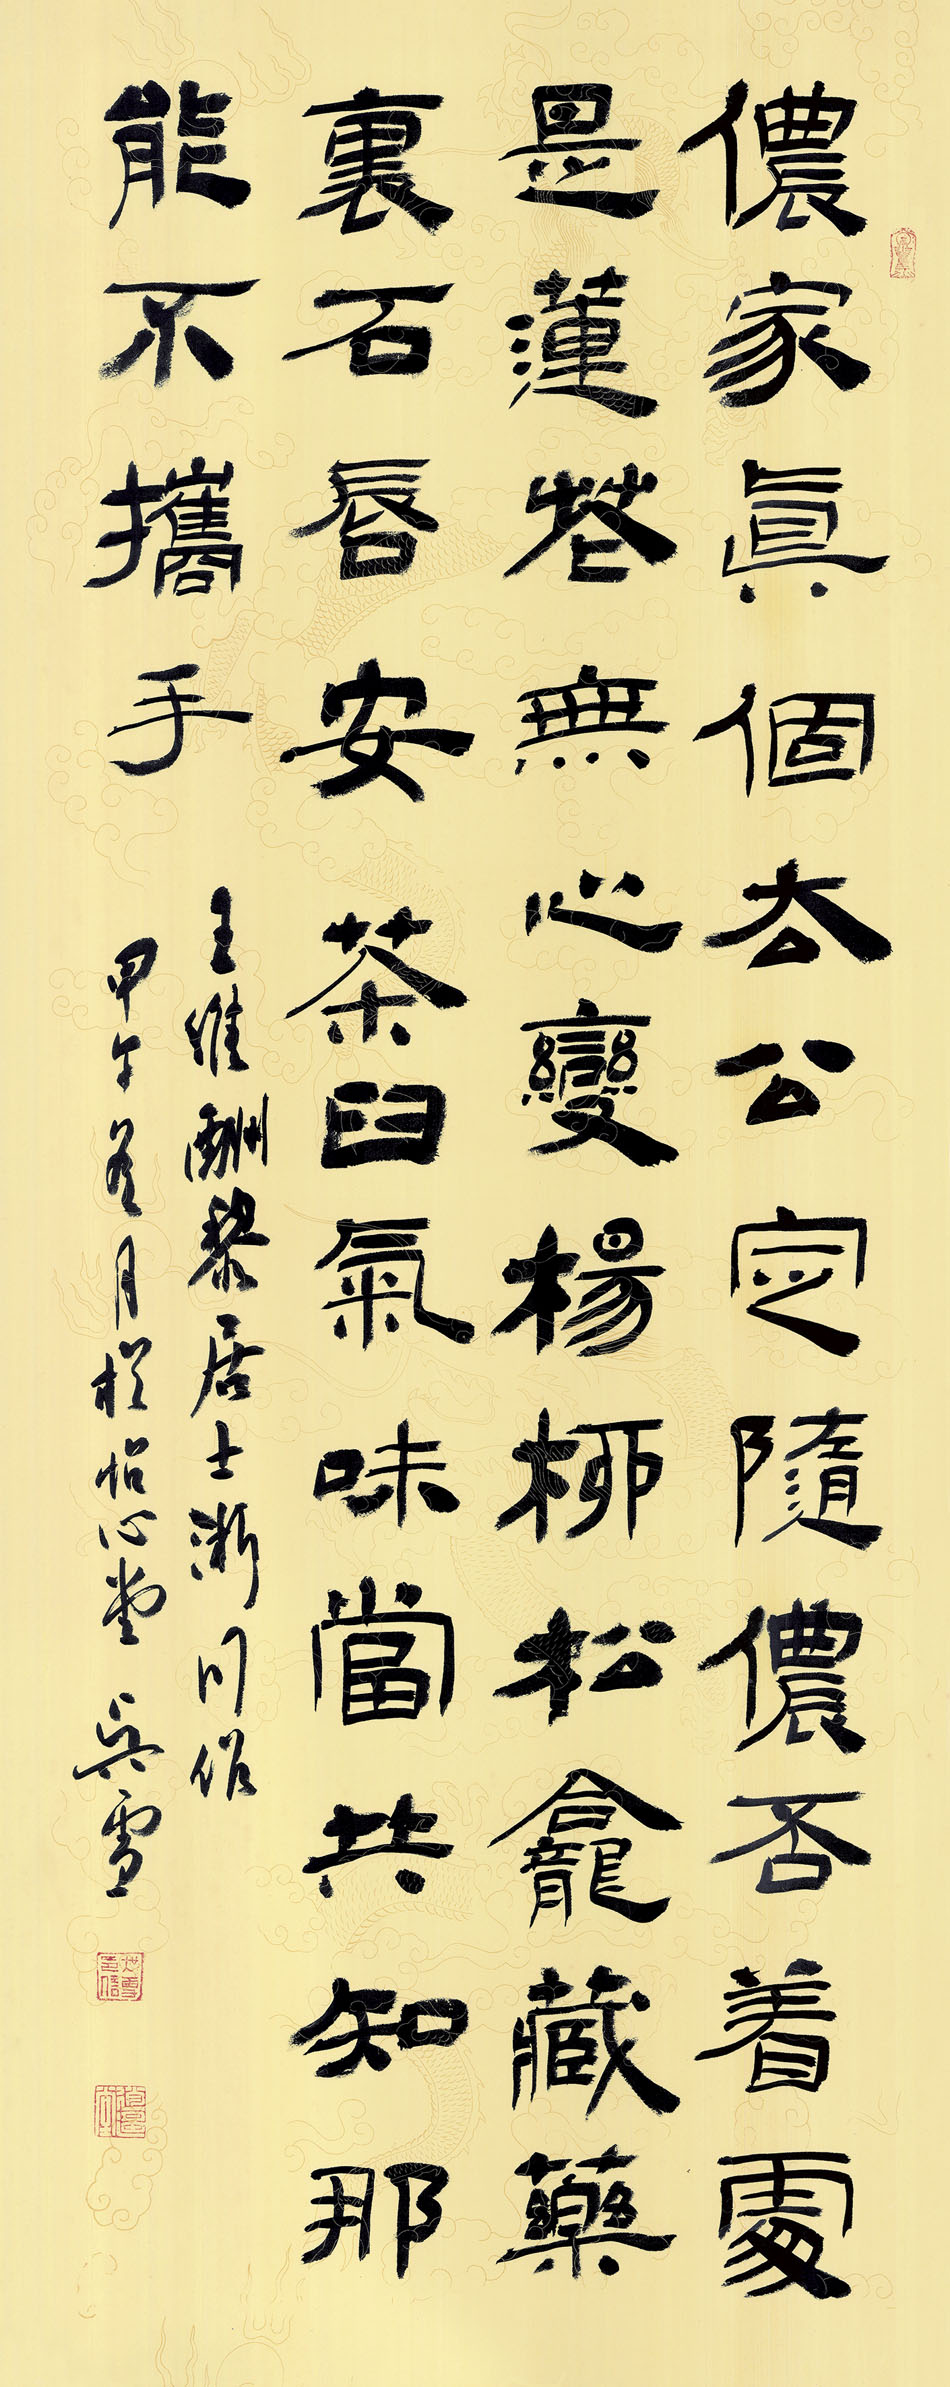 儂家眞個去公定隨儂否着處
是蓮花無心變楊柳松龕藏藥
裏石唇安茶臼氣味當共知那
能不攜手
王維酬黎居士淅川作
甲午月於怡心堂 吳雪